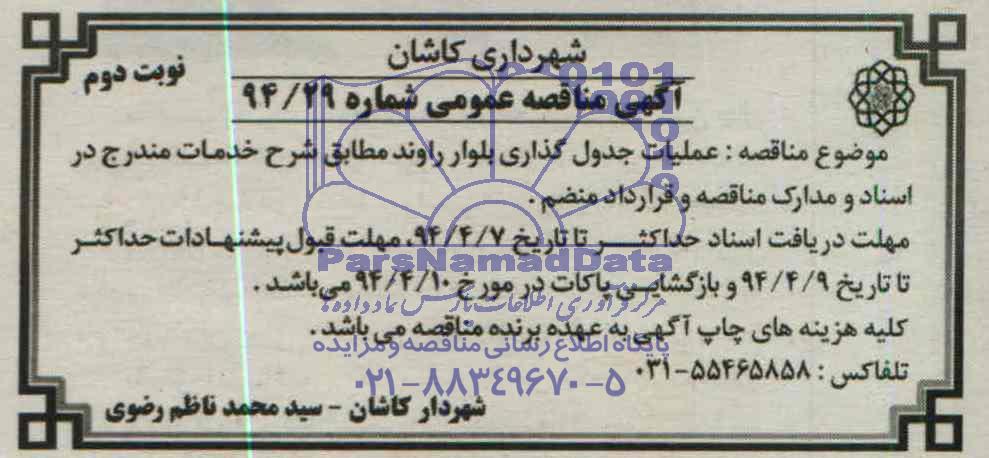 شهرداری کاشان
نوبت دوم
آگهی مناقصه عمومی شماره ۹۴/۲۹
موضوع مناقصه : عملیات جدول گذاری بلوار راوند مطابق شرح خدمات مندرج در
اسناد و مدارک مناقصه و قرارداد منضم .
مهلت دریافت اسناد حداکثر تا تاریخ ۹۴/۴/۷، مهلت قبول پیشنهادات حداکثر
تا تاریخ ۹۴/۴/۹ و بازگشایی پاکات در مورخ ۹۴/۴/۱۰ می باشد .
کلیه هزینه های چاپ آگهی به عهده برنده مناقصه می باشد .
تلفاکس : ۵۵۴۶۵۸۵۸-۰۳۱
شهردار کاشان - سید محمد ناظم رضوی
ParsNamadData
مرکز فرآوری اطلاعات پارس نماد داده ها
پایگاه اطلاع رسانی مناقصه و مزایده
۰۲۱-۸۸۳۴۹۶۷۰-۵